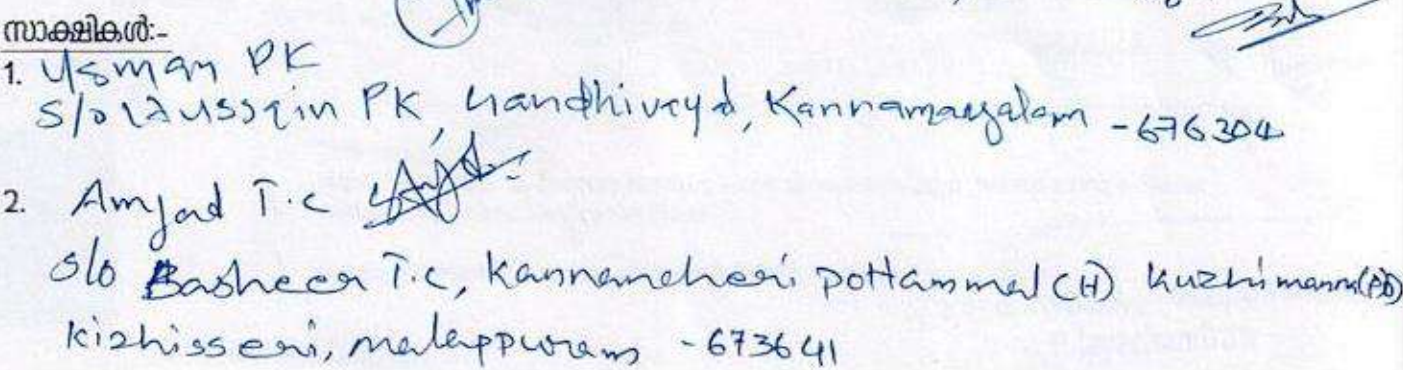 സാക്ഷികൾ:-
1. Usman PK
S/o Hussain PK, Gandhiveyd, Kannamangalam - 676304
2. Amjad T.c
S/o Basheer T.C, Kannancheri pottammal (H) Kuzhimanna (PO)
Kizhisseri, malappuram - 673641